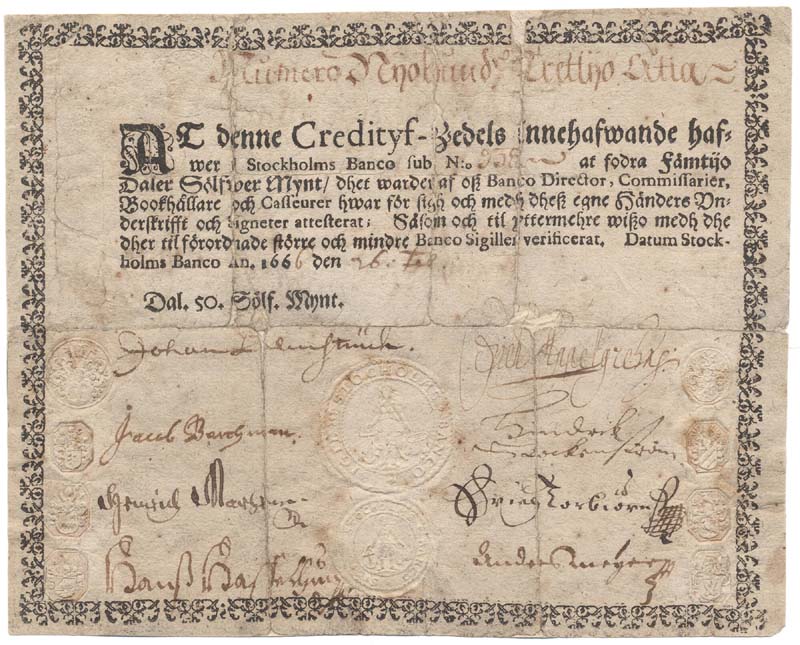 Numero Nyohund Trettijo Otta
AT denne Credityf-Zedels Innehafwande haf-
wer Stockholms Banco sub N:o 938 at fodra Fämtijo
Daler Sölfwer Mynt / dhet warder af oß Banco Director, Commissarier,
Bookhållare och Casseurer hwar för sigh och medh dheß egne Händers Vn-
derskrifft och Signeter attesterat; Såsom och til yttermehre wißo medh dhe
dher til förordnade större och mindre Banco Sigillen verificerat. Datum Stock-
holms Banco An. 1666 den 26.
Dal. 50. Sölf. Mynt.
Johan
STOCKHOLMS BANCO
Jacob Barchman.
Hendrik
Henrich
Erich Torbiörn
Hanß
Anders Meyer